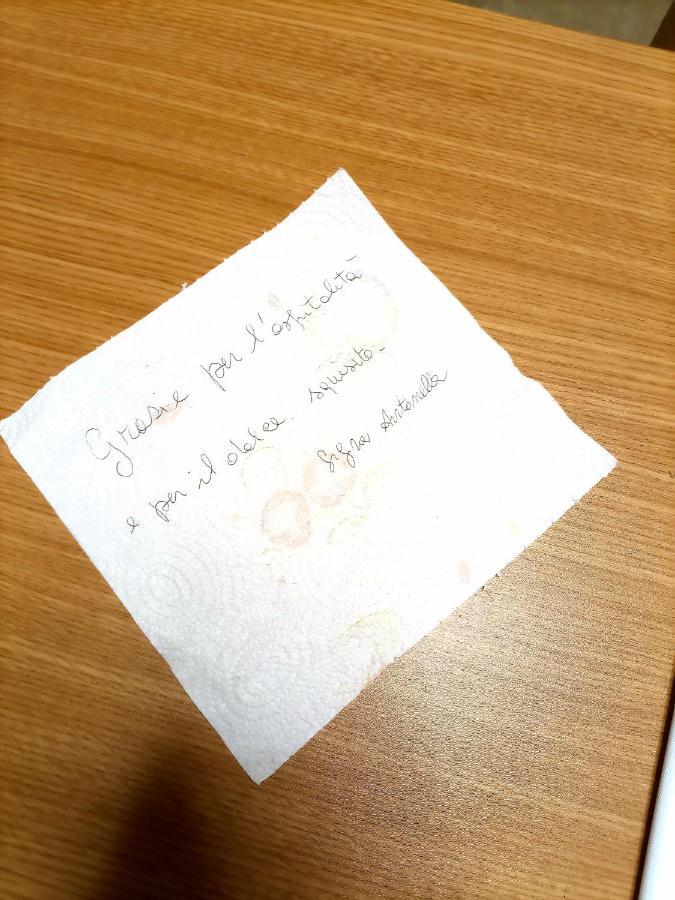 Grazie per l'ospitalità
e per il dolce. squisito.
Sig.ra Antonella